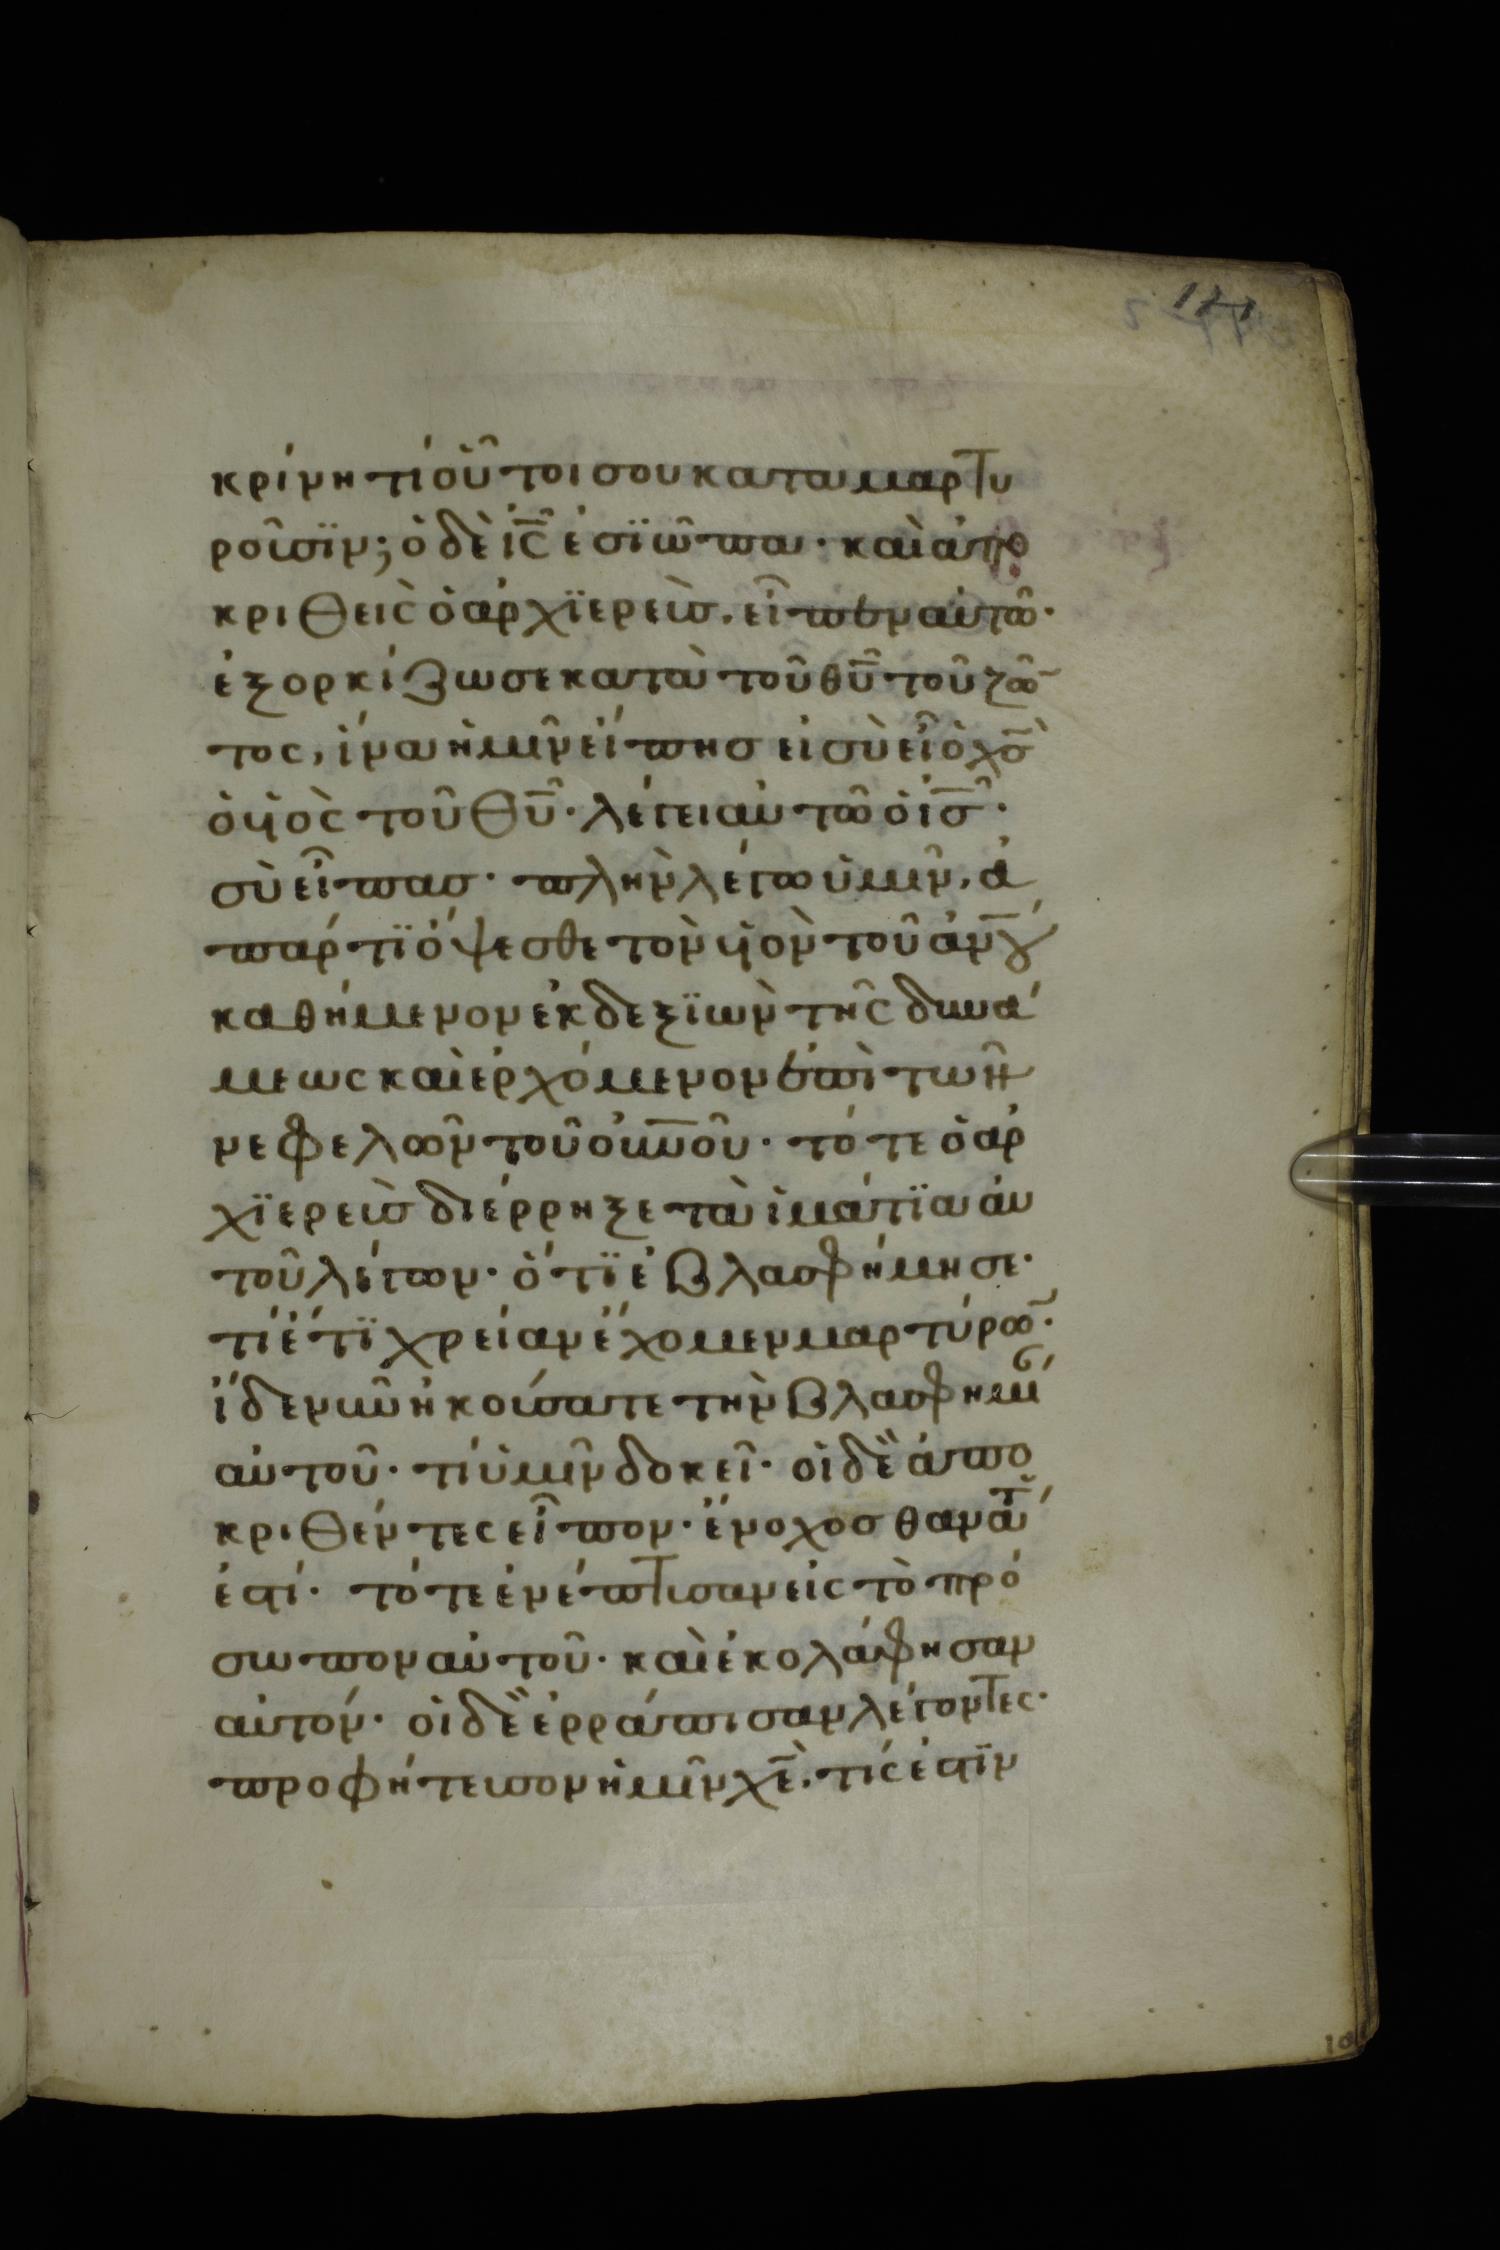 κρίνη τί οὗτοί σου καταμαρτυ
ροῦσϊν; ὁ δὲ ι̅ς̅ ἐσϊώπα· καὶ ἀπο
κριθεὶς ὁ ἀρχϊερεὺσ, εἶπεν αὐτῶ·
ἐξορκίζω σε κατὰ τοῦ θ̅υ̅ τοῦ ζῶ̅
τος, ἵνα ἡμῖν εἴπησ εἰ σὺ εἶ ὁ χ̅σ̅
ὁ ὑὸς τοῦ θ̅υ̅· λέγει αὐτῶ ὁ ι̅σ̅·
σὺ εἶπασ· πλὴν λέγω ὑμῖν, ἀ
πάρτϊ ὄψεσθε τὸν ὑὸν τοῦ α̅ν̅ου
καθήμενον ἐκ δεξϊὼν τῆς δυνά
μεως καὶ ἐρχόμενον ἐπὶ τῶν
νεφελῶν τοῦ ο̅υ̅ν̅οῦ· τότε ὁ ἀρ
χϊερεὺσ διέρρηξε τὰ ἱμάτϊα ἀυ
τοῦ λέγων· ὅτϊ ἐβλασφήμησε·
τί ἔτϊ χρείαν ἔχομεν μαρτύρω̅·
ἴδε νῦν ἠκούσατε τὴν βλασφημί
αὐτοῦ· τί ὑμῖν δοκεῖ· οἱ δὲ ἀπο
κριθέντες εἶπον· ἔνοχοσ θανάτ
ἐστί· τότε ἐνέπτυσαν εἰς τὸ πρό
σωπον αὐτοῦ· καὶ ἐκολάφησαν
αὐτόν· οἱ δὲ ἐρράπισαν λέγοντες·
προφήτευσον ἡμῖν χ̅ε̅, τίς ἐστϊν